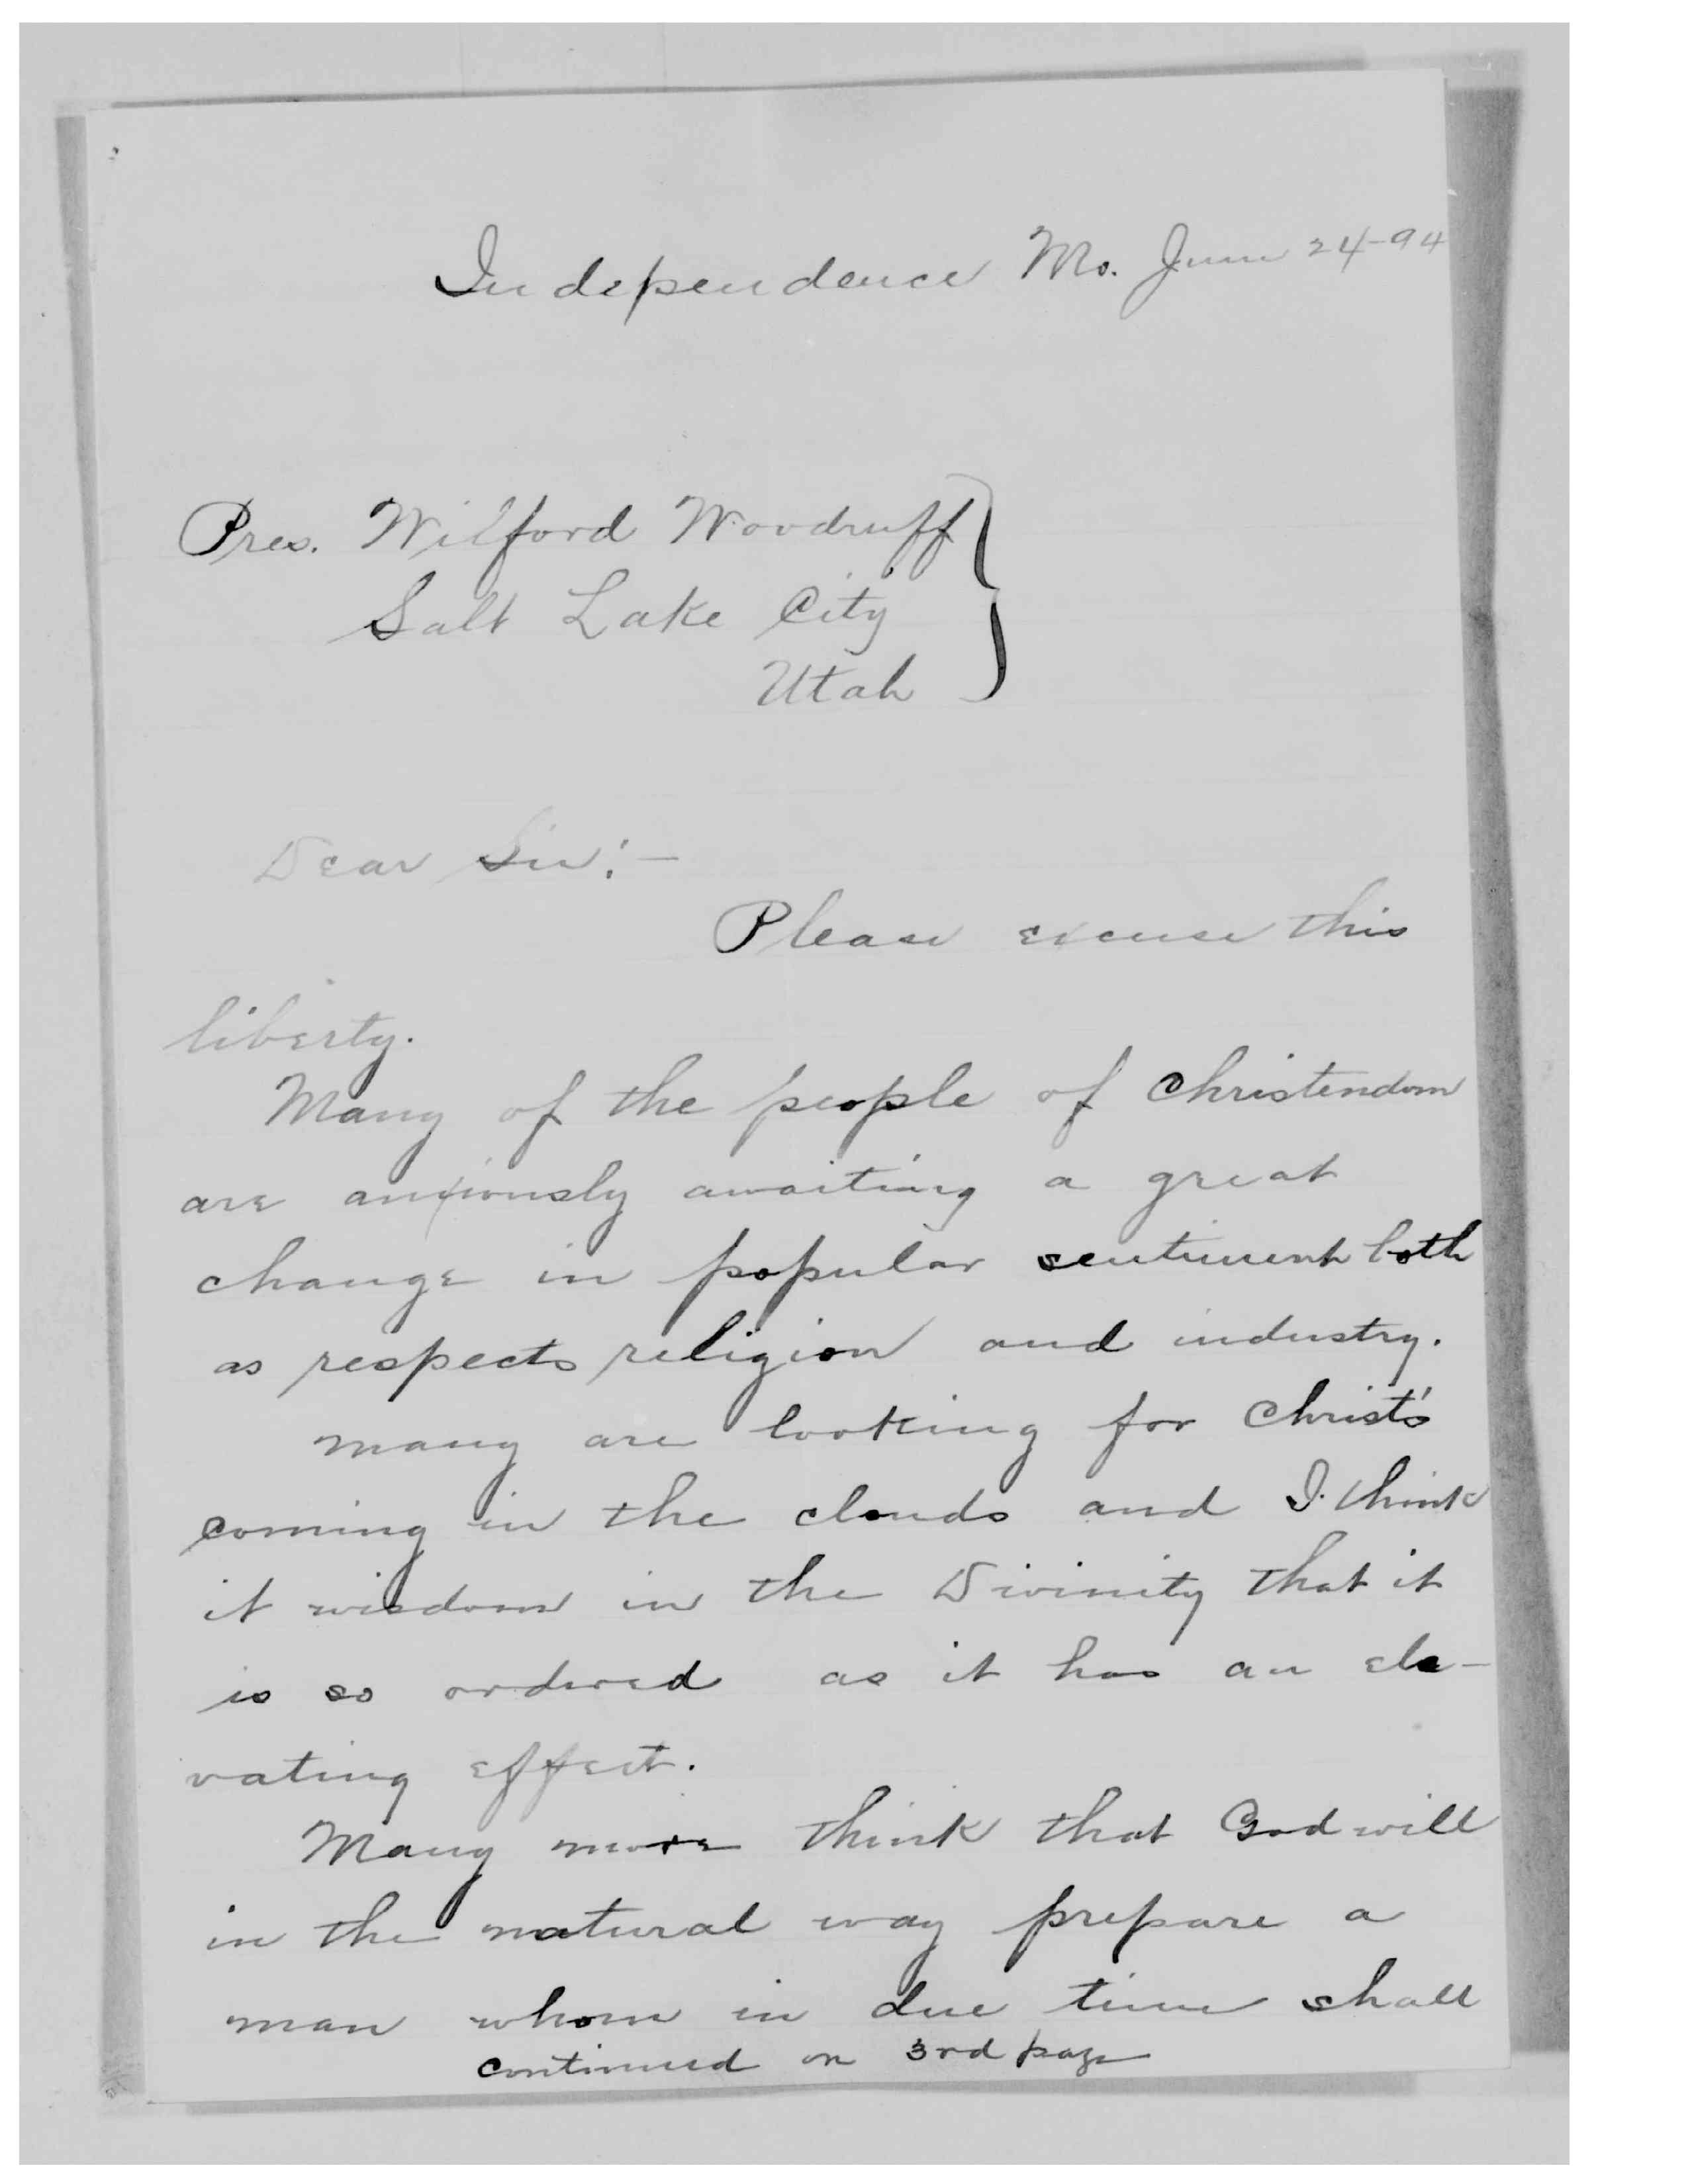 Independence Mo. June 24-94
Pres. Wilford Woodruff
Salt Lake City
Utah
Dear Sir:-
Please excuse this
liberty.
Many of the people of Christendom
are anxiously awaiting a great
change in popular sentiment both
as respects religion and industry.
many are looking for Christ's
coming in the clouds and I think
it wisdom in the Divinity that it
is so ordered as it has an ele-
vating effect.
Many more think that God will
in the natural way prepare a
man whom in due time shall
continued on 3rd page